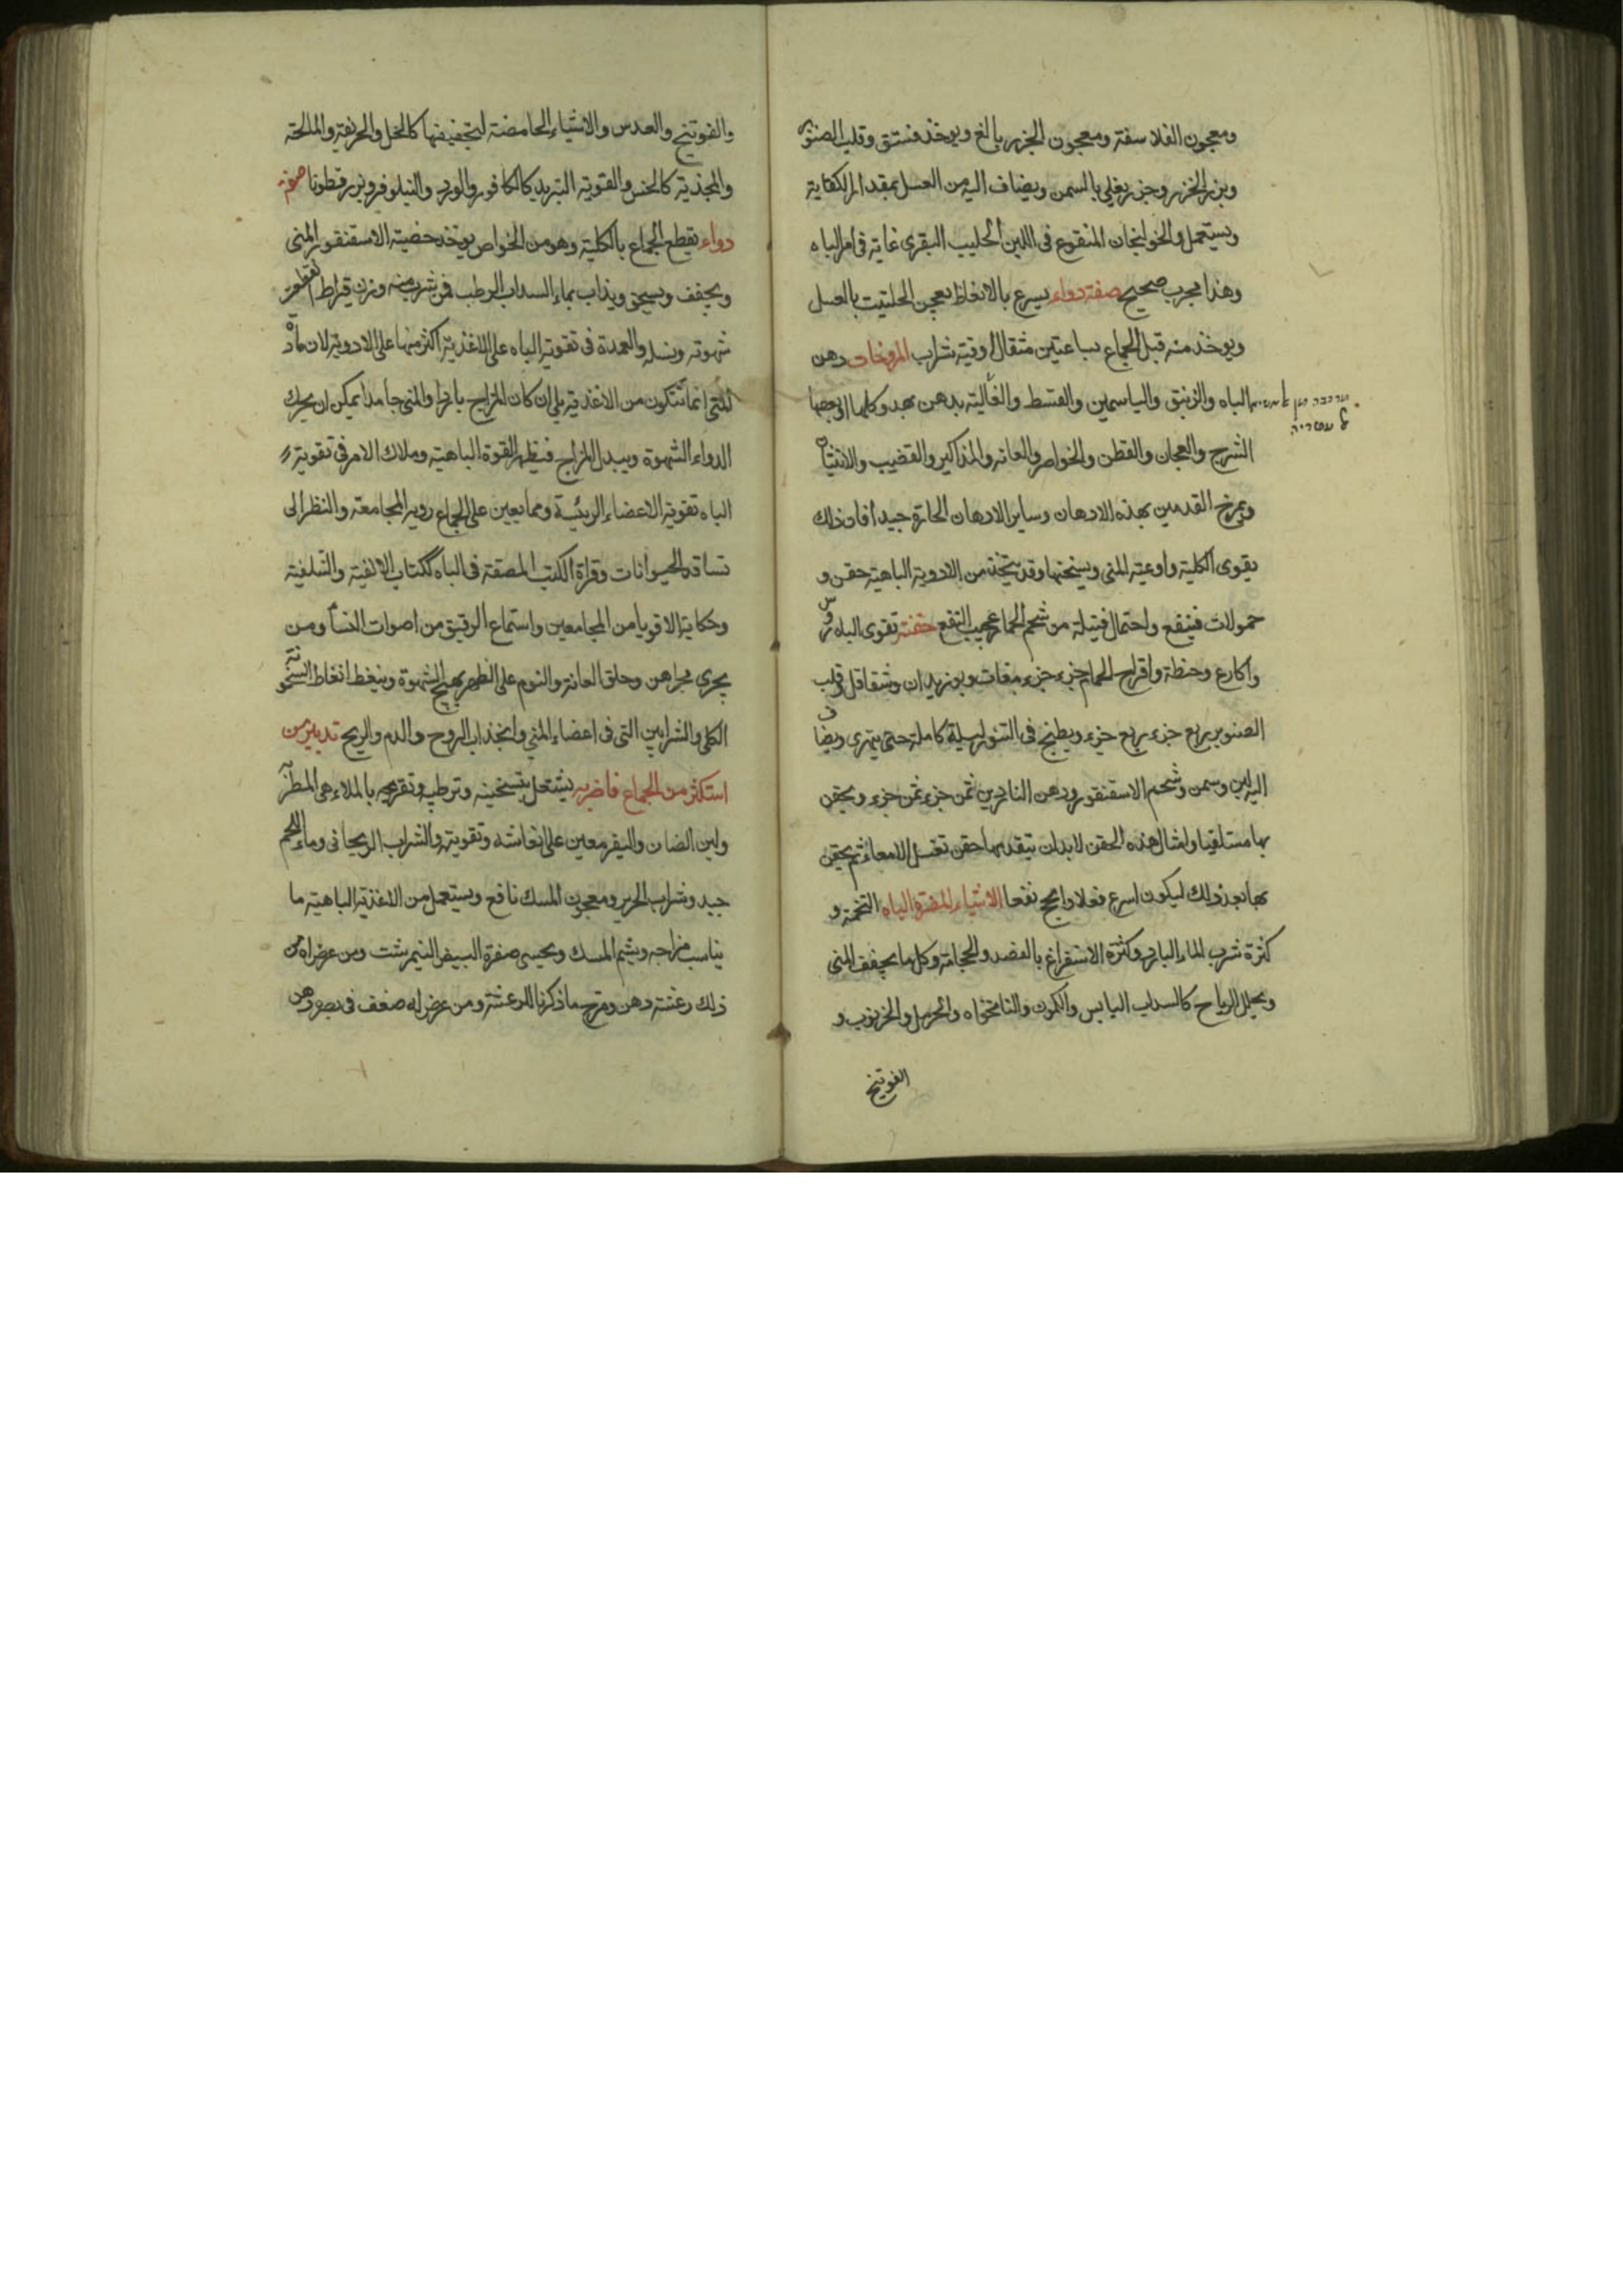 ومعجون الفلاسفة ومعجون الجزر بالغ ويوخذ فستق وقلب الصنوبر
وبزر الجزر وجزر يغلى بالسمن ويضاف اليه من العسل بمقدار الكفاية
ويستعمل والخولنجان المنقوع فى اللبن الحليب البقرى غاية فى امر الباه
وهذا مجرب صحيح صفة دواء يسرع بالانعاظ يعجن الحلتيت بالعسل
ويوخذ منه قبل الجماع بساعتين مثقال اوقية شراب المروخات دهن
الباه والزنبق والياسمين والقسط والغالية يدهن بهد وكلها او بعضها
الشرج والعجان والقطن والخواصر والعانه والمذاكير والقضيب والانثيان
ويمرخ القدمين بهذه الادهان وساير الادهان الحارة جيد افان ذلك
يقوى الكلية واوعية المنى ويسخنها وقد يتخذ من الادوية الباهية حقن و
حمولات فينفع واحتمال فتيلة من شحم الحمار عجيب النفع حقنة تقوى الباه روس
واكارع وحنطة وافراخ الحمام جزء جزء مغاث وبوزيدان وشقاقل وقلب
الصنوبر ربع جزء ربع جزء ويطبخ فى التنور ليلة كاملة حتى يتهرى ويضاف
اليه لبن وسمن وشحم الاسقنقور ودهن الناردين ثمن جزء ثمن جزء ويحقن
بها مستلقيا وامثال هذه الحقن لابد ان يتقدمها حقن تغسل الامعاء ثم يحقن
بها بعد ذلك ليكون اسرع فعلا وانجح نفعا الاشياء المضرة بالباه التخمة و
كثرة شرب الماء البارد وكثرة الاستفراغ بالفصد والحجامة وكل ما يجفف المنى
ويحلل الرياح كالسداب اليابس والكمون والنانخواه والحرمل والخرنوب و
الفوتنج
والفوتنج والعدس والاشياء الحامضة لتجفيفها كالخل والحريفة والمالحة
والمخدرة كالخس والقوية التبريد كالكافور والورد والنيلوفر وبزر قطونا صفة
دواء يقطع الجماع بالكلية وهو من الخواص يوخذ خصية الاسقنقور اليمنى
ويجفف ويسحق ويذاب بماء السداب الرطب فمن شرب منه وزن قيراط انقطعت
شهوته ونسله والعمدة فى تقوية الباه على الاغذية اكثر منها على الادوية لان مادة
المنى انما تتكون من الاغذية بلى ان كان المزاج باردا والمنى جامدا يمكن ان يحرك
الدواء الشهوة ويبدل المزاج فيظهر القوة الباهية وملاك الامر فى تقوية
الباه تقوية الاعضاء الرئيسة ومما يعين على الجماع روية المجامعة والنظر الى
تسافد الحيوانات وقراة الكتب المصنفة فى الباه ككتاب الالفية والشلفية
وحكاية الاقويا من المجامعين واستماع الرقيق من اصوات النسا ومن
يجرى مجراهن وحلق العانة والنوم على الظهر يهيج الشهوة وينعظ انعاظا لتسخونة
الكلى والشرايين التى فى اعضاء المنى وانجذاب الروح والدم والريح تدبير من
استكثر من الجماع فاضر به يشتغل بتسخينه وترطيبه وتفريحه بالملاهى المطربة
ولبن الضان والبقر معين على انعاشه وتقويته والشراب الريحانى وماء اللحم
جيد وشراب الحرير ومعجون المسك نافع ويستعمل من الاغذية الباهية ما
يناسب مزاجه ويشم المسك ويحسى صفرة البيض النيمرشت ومن عرض له من
ذلك رعشة دهن ومرخ بما ذكرنا للرعشة ومن عرض له ضعف فى بصره دهن